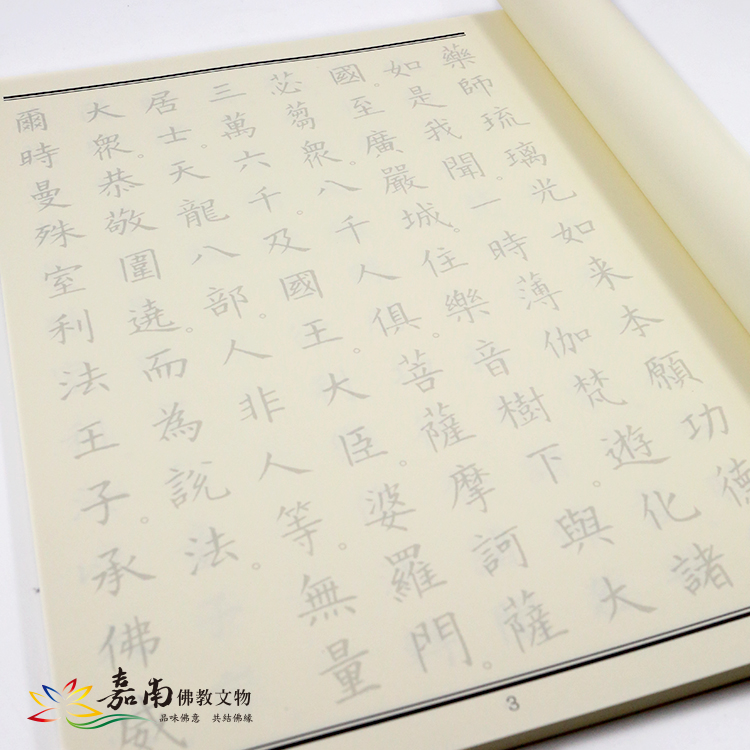 藥師琉璃光如来本願功德
如是我聞。一時薄伽梵遊化諸
國。至廣嚴城。住樂音樹下。與大
苾芻眾。八千人俱。菩薩摩訶薩
三萬六千。及國王。大臣。婆羅門。
居士。天龍八部。人非人等。無量
大眾。恭敬圍遶。而為說法。
爾時曼殊室利法王子。承佛威
3
嘉南佛教文物
品味佛意 共結佛緣